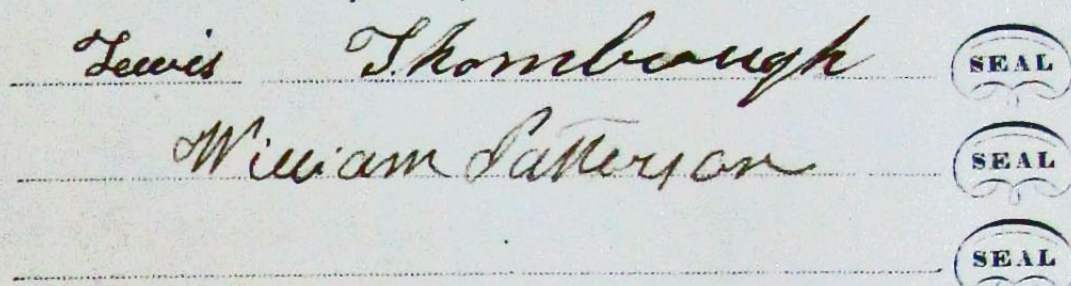 Lewis Thornbrough SEAL
William Patterson SEAL
SEAL